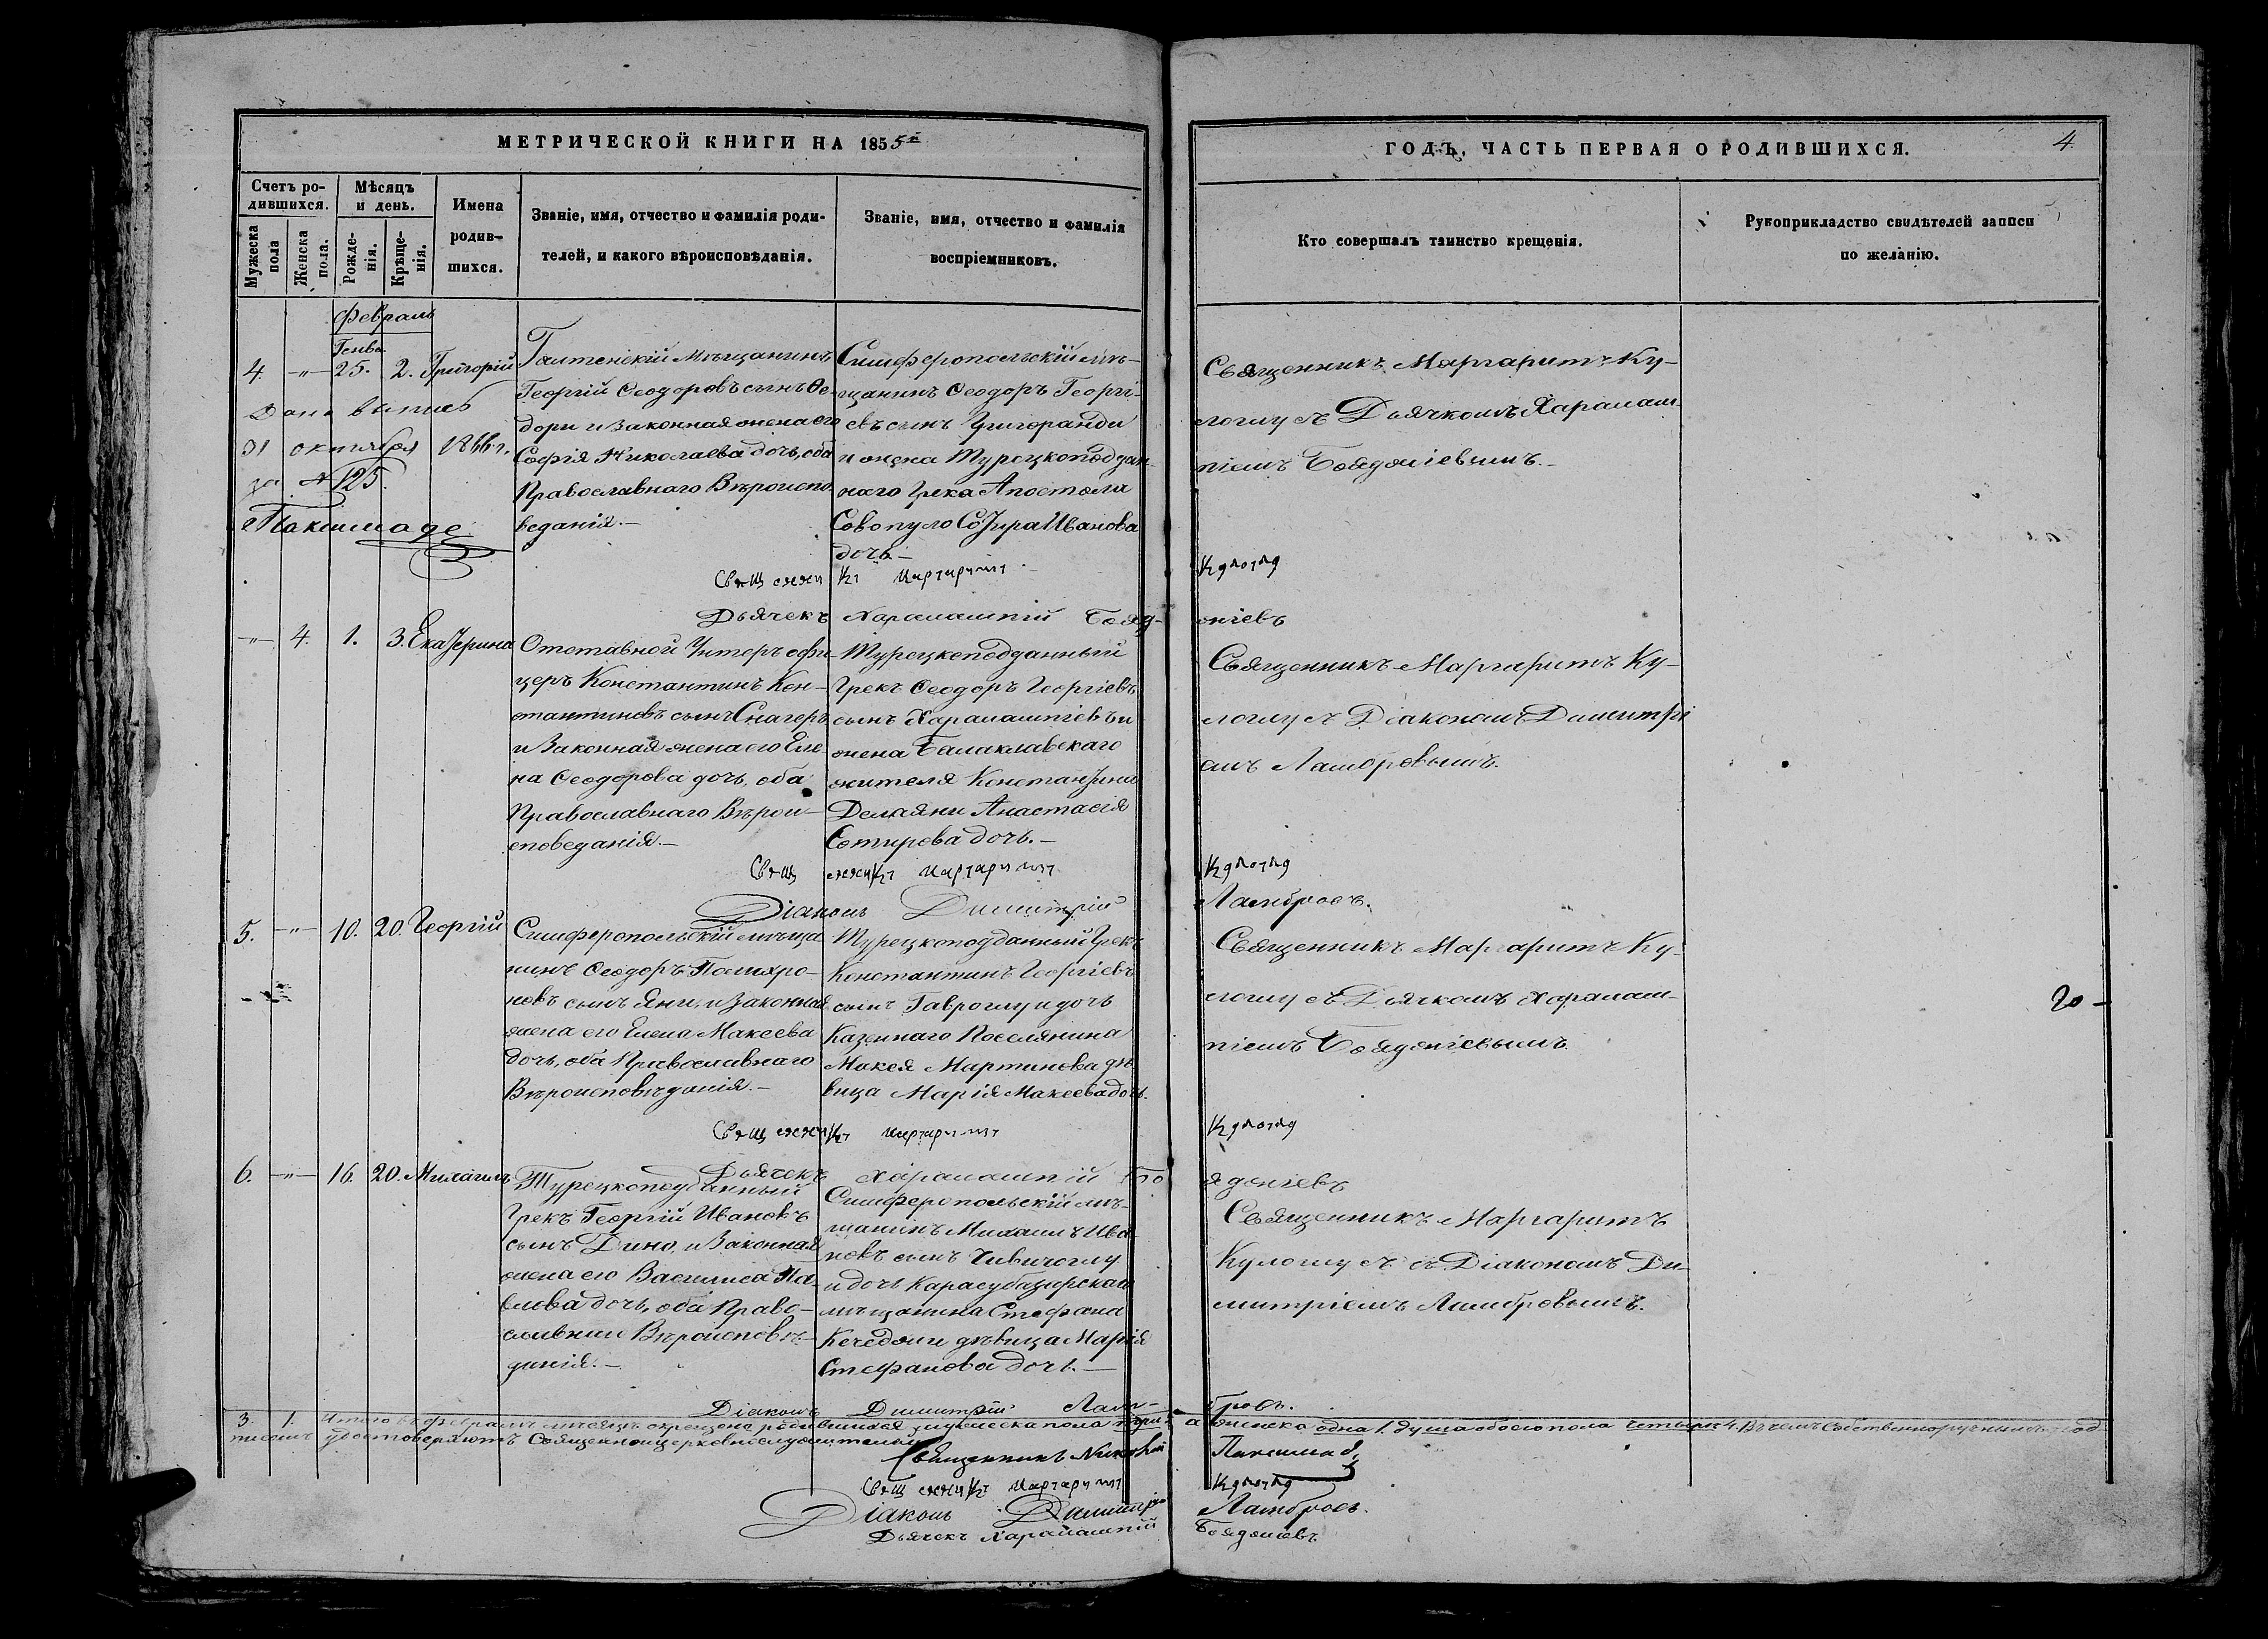 МЕТРИЧЕСКОЙ КНИГИ НА 1855й
ГОДЪ, ЧАСТЬ ПЕРВАЯ О РОДИВШИХСЯ.
4.
Счетъ ро-
дившихся.
Мужеска
пола
Женска
пола.
Мѣсяцъ
и день.
Рожде-
нія.
Крѣще-
нія.
Имена
родив-
шихся.
Званіе, имя, отчество и фамилія роди-
телей, и какого вѣроисповѣданія.
Званіе, имя, отчество и фамилія
воспріемниковъ.
Кто совершалъ таинство крещенія.
Рукоприкладство свидѣтелей записи
по желанію.
Февраль
Генва.
4. -"- 25. 2. Григорій
Дана выпись
31 октября 1866 г.
за №125.
Пакимаде
мѣщанинъ
Георгій Ѳеодоровъ сынъ Ѳе-
дори и законная жена его
Софія Николаева дочь, оба
Православнаго Вѣроиспо-
веданія.-
Симферопольскій мѣ-
щанинъ Ѳеодоръ Георгі-
евъ сынъ Григоранди
и жена Турецкоподдан-
наго Грека Апостола
Совопуло Софира Иванова
дочь.-
Священникъ Маргаритъ Ку-
логлу съ Дьячкомъ Харалам-
піемъ Бояджіевымъ.-
Дьячекъ Харалампій Бояд-
жіевъ
-"- 4. 1. 3. Екатерина
Отставной Унтеръ офи-
церъ Константинъ Кон-
стантиновъ сынъ Снагеръ
и Законная жена его Еле-
на Ѳеодорова дочь, оба
Православнаго Вѣрои-
споведанія.-
Турецкоподданный
Грекъ Ѳеодоръ Георгіевъ
сынъ Харалампіевъ и
жена Балаклавскаго
жителя Константина
Делаяни Анастасія
Сотирова дочь.-
Священникъ Маргаритъ Ку-
логлу съ Діакономъ Димитрі
емъ Ламбровымъ.
Діаконъ Димитрій
Ламбровъ.
5. -"- 10. 20. Георгій
Симферопольскій мѣща
нинъ Ѳеодоръ Полихро-
новъ сынъ Яни, и законная
жена его Елена Макеева
дочь, оба Православнаго
Вѣроисповѣданія.-
Турецкоподданный Грекъ
Константинъ Георгіевъ
сынъ Гавроглу и дочь
Казеннаго Поселянина
Макея Мартинова дѣ
вица Марія Макеева дочь.
Священникъ Маргаритъ Ку-
логлу съ Дьячкомъ Харалам-
піемъ Бояджіевымъ.
20 -
Дьячекъ Харалампій Бо
яджіевъ
6. -"- 16. 20. Михаилъ
Турецкоподданный
Грекъ Георгій Ивановъ
сынъ Дино, и Законная
жена его Василиса Па-
влова дочь, оба Право-
славнаго Вѣроисповѣ-
данія.-
Симферопольскій мѣ-
щанинъ Михаилъ Ива
новъ сынъ Чивичоглу
и дочь Карасубазарскаго
мѣщанина Стефана
Кечеджи дѣвица Марія
Стефанова дочь.-
Священникъ Маргаритъ
Кулоглу съ Діакономъ Ди-
митріемъ Ламбровымъ.
Діаконъ Димитрій Лам-
бровъ.
3. 1. Итого в февралѣ мѣсяцѣ окрещено родившихся мужеска пола три 3. а женска одна 1. душа обоего пола четыре 4. Въ чемъ собственноручнымъ под-
писомъ удостоверяютъ Священноцерковнослужители
Священникъ Николай
Діаконъ Димитрій Ламбровъ.
Дьячекъ Харалампій Бояджіевъ